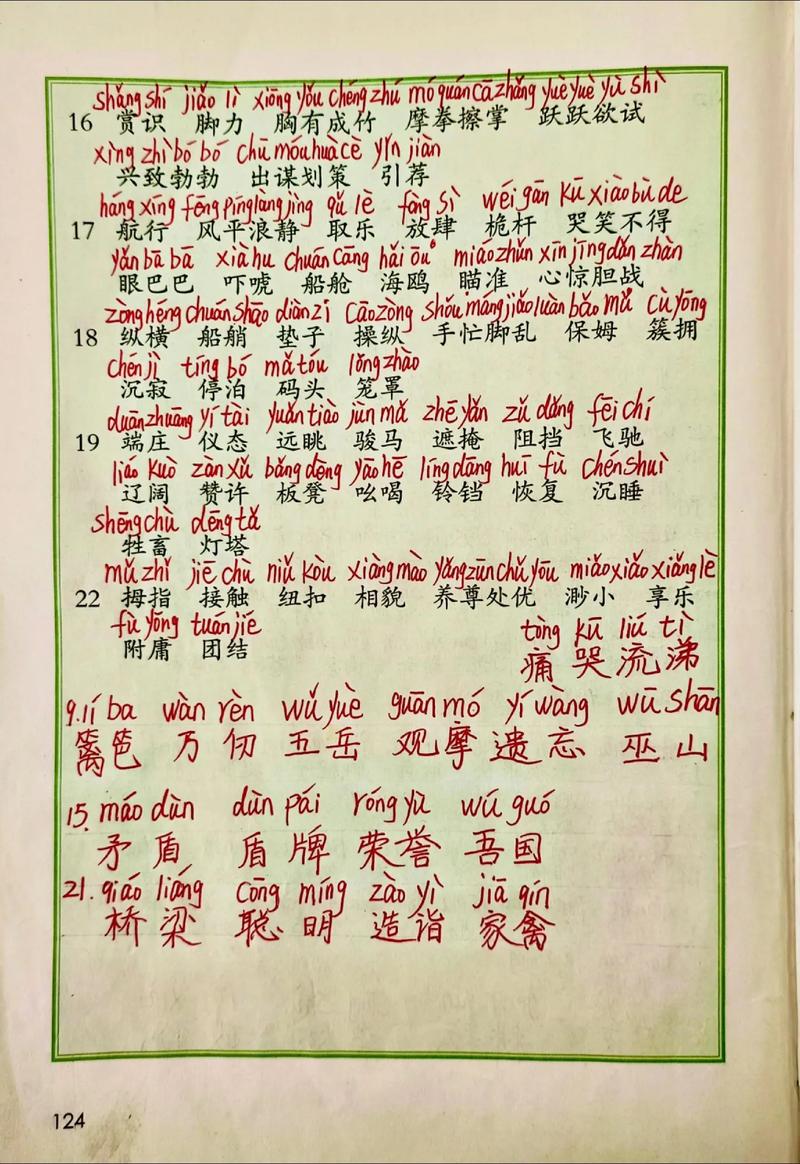 shǎng shí jiǎo lì xiōng yǒu chéng zhú mó quán cā zhǎng yuè yuè yù shì
16 赏识 脚力 胸有成竹 摩拳擦掌 跃跃欲试
xìng zhì bó bó chū móu huà cè yǐn jiàn
兴致勃勃 出谋划策 引荐
háng xíng fēng píng làng jìng qǔ lè fàng sì wéi gān kū xiào bù dé
17 航行 风平浪静 取乐 放肆 桅杆 哭笑不得
yǎn bā bā xià hu chuán cāng hǎi ōu miáo zhǔn xīn jīng dǎn zhàn
眼巴巴 吓唬 船舱 海鸥 瞄准 心惊胆战
zòng héng chuán shāo diàn zi cāo zòng shǒu máng jiǎo luàn bǎo mǔ cù yōng
18 纵横 船艄 垫子 操纵 手忙脚乱 保姆 簇拥
chén jì tíng bó mǎ tóu lǒng zhào
沉寂 停泊 码头 笼罩
duān zhuāng yí tài yuǎn tiào jùn mǎ zhē yǎn zǔ dǎng fēi chí
19 端庄 仪态 远眺 骏马 遮掩 阻挡 飞驰
liáo kuò zàn xǔ bǎn dèng yāo hē líng dāng huī fù chén shuì
辽阔 赞许 板凳 吆喝 铃铛 恢复 沉睡
shēng chù dēng tǎ
牲畜 灯塔
mǔ zhǐ jiē chù niǔ kòu xiàng mào yǎng zūn chǔ yōu miǎo xiǎo xiǎng lè
22 拇指 接触 纽扣 相貌 养尊处优 渺小 享乐
fù yōng tuán jié
附庸 团结
tòng kū liú tì
痛哭流涕
9. lí ba wàn rèn wǔ yuè guān mó yí wàng wū shān
篱笆 万仞 五岳 观摩 遗忘 巫山
15. máo dùn dùn pái róng yù wú guó
矛盾 盾牌 荣誉 吾国
21. qiáo liáng cōng míng zào yì jiā qín
桥梁 聪明 造诣 家禽
124